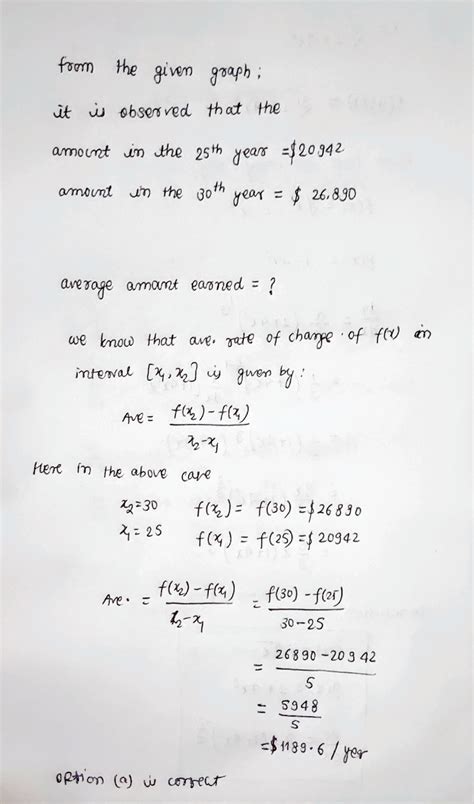 from the given graph;
it is observed that the
amount in the 25th year = $20942
amount in the 30th year = $ 26.890
average amant earned = ?
we know that ave. rate of change of f(x) in
interval [x₁, x₂] is given by:
Ave = f(x₂) - f(x₁)
x₂ - x₁
Here in the above care
x₂ = 30 f(x₂) = f(30) = $26890
x₁ = 25 f(x₁) = f(25) = $20942
Ave. = f(x₂) - f(x₁) = f(30) - f(25)
x₂ - x₁ 30 - 25
= 26890 - 20942
5
= 5948
5
= $1189.6 / year
option (a) is correct